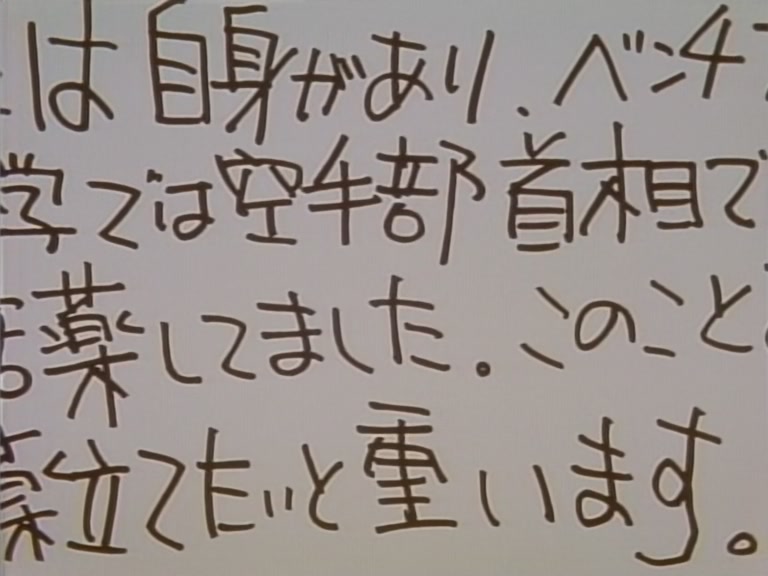 は自身があり、ベンチ
学では空牛部首相で
薬してました。このこと
薬立てたいと重います。